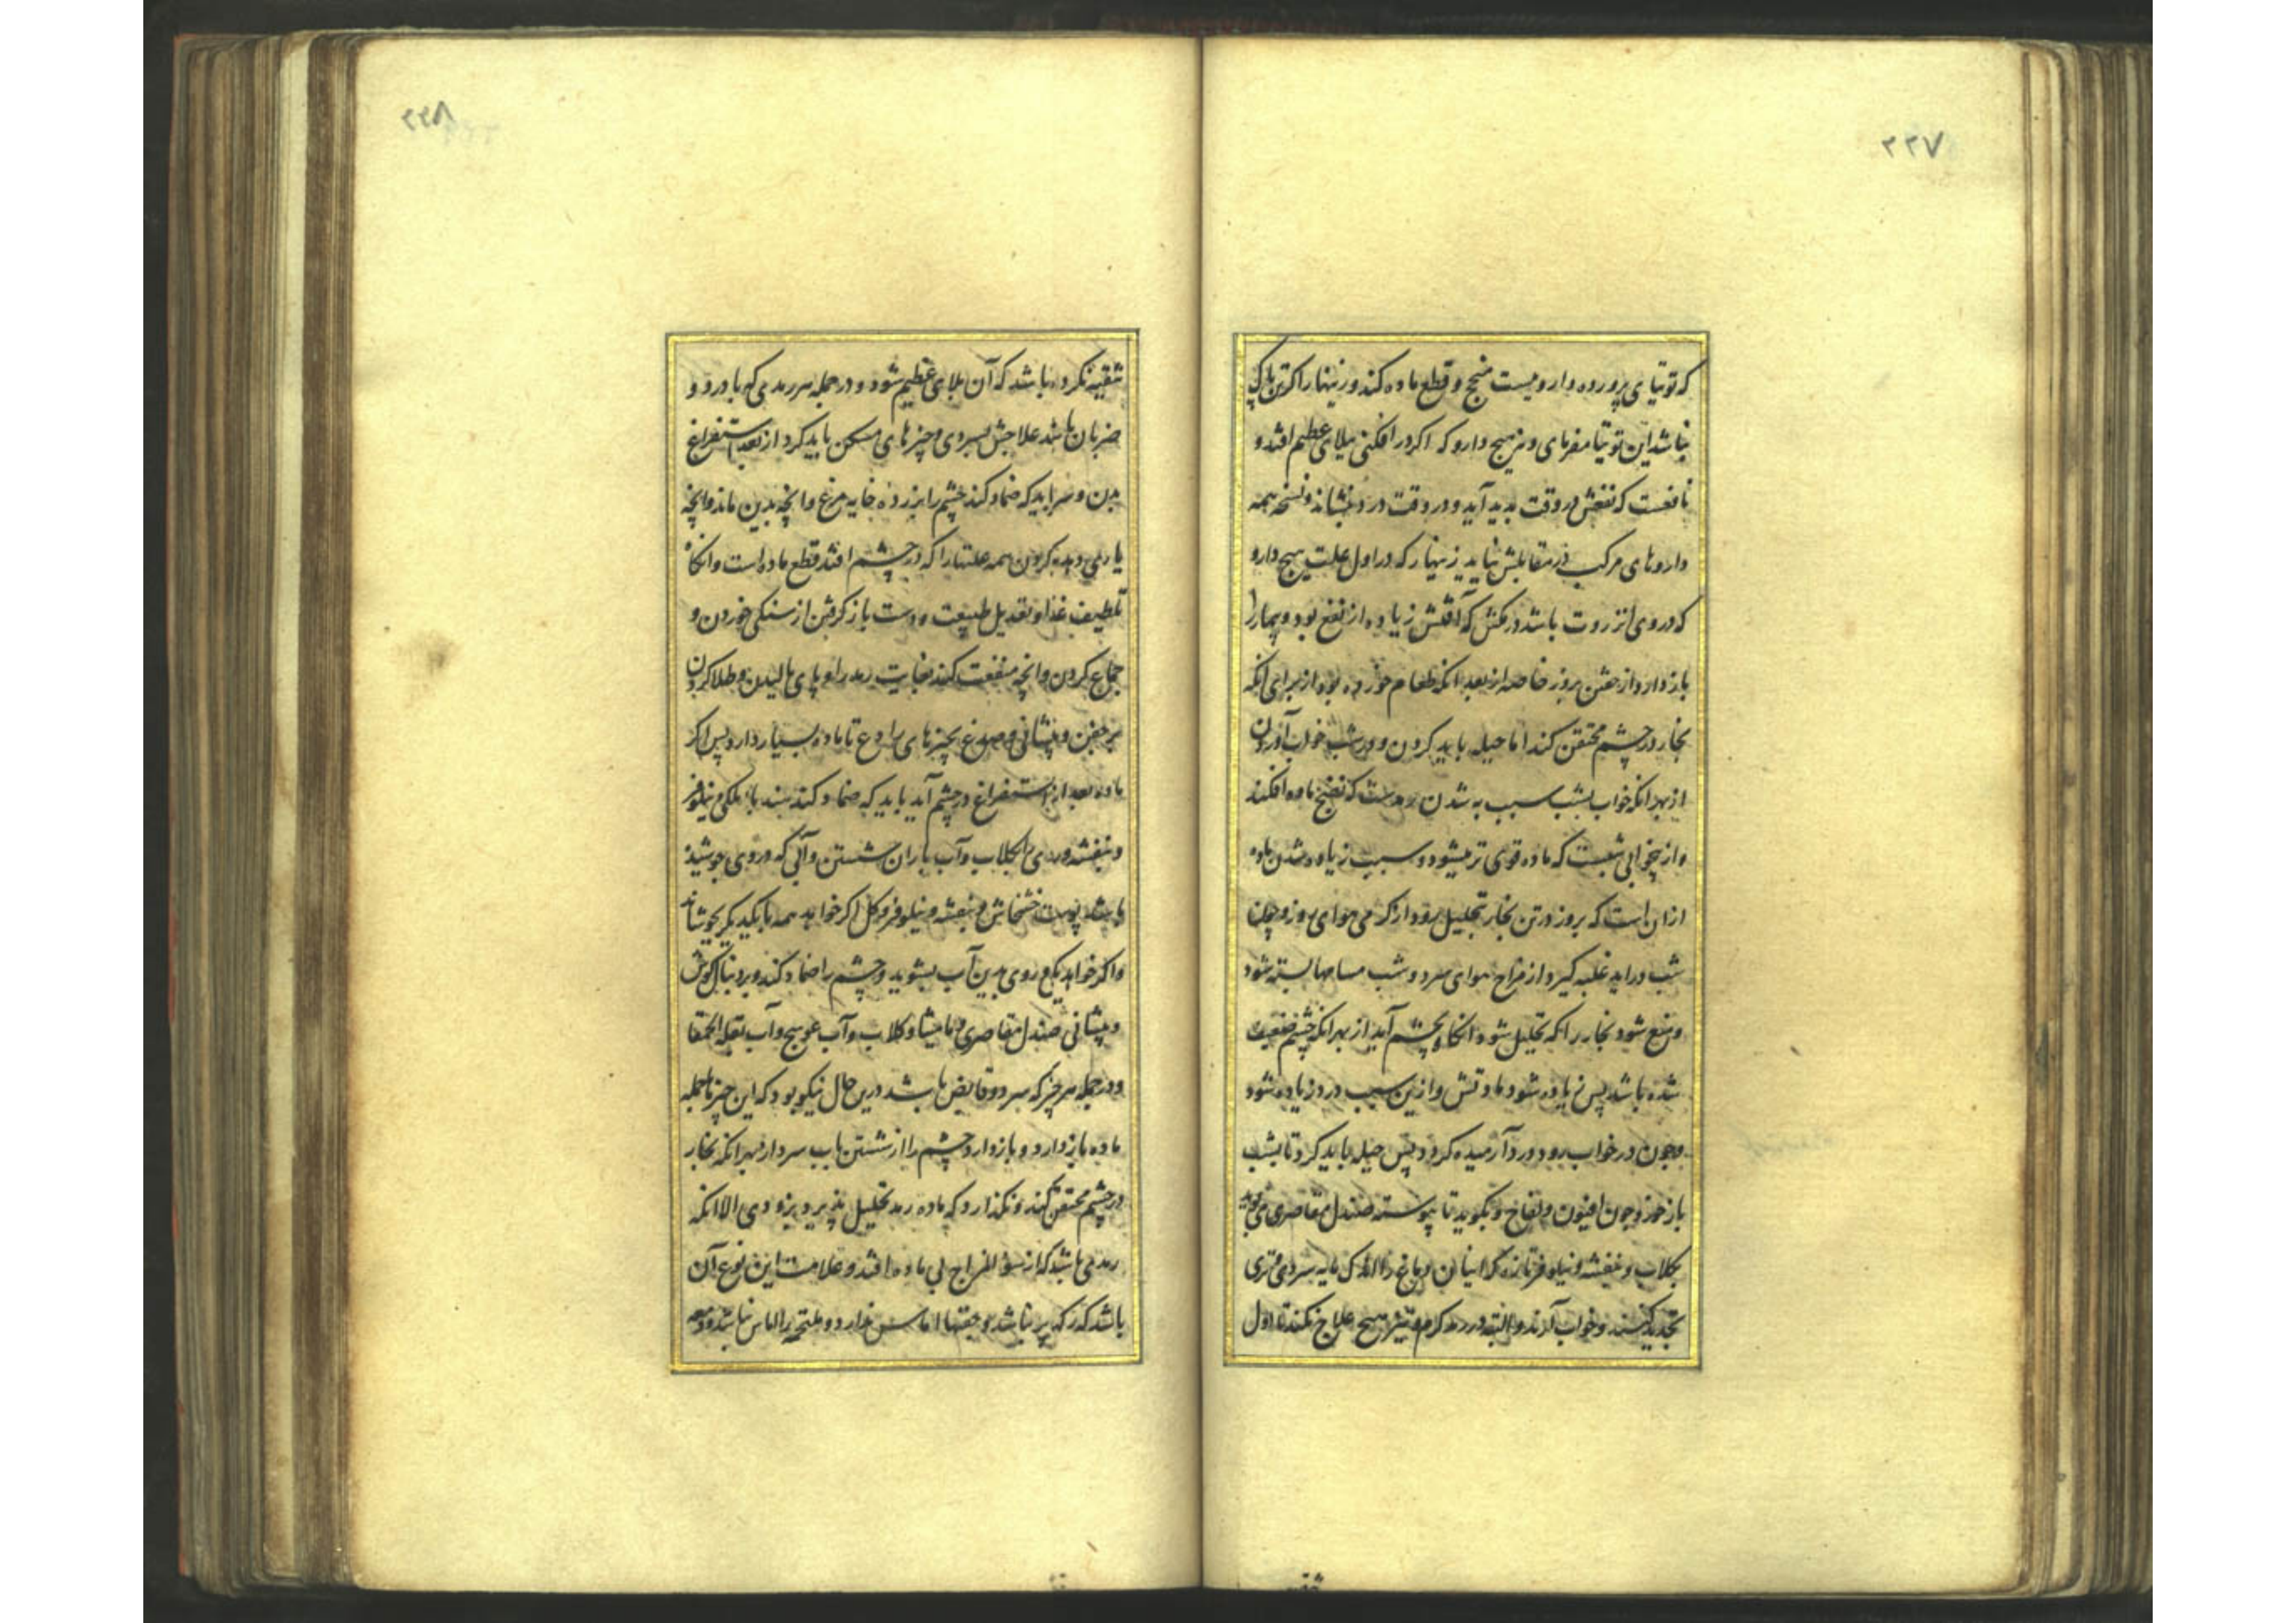 ۲۲۷
که توتیای پرورده داروییست منجح و قطع ماده کند و زینهار اکر تن پاک
نباشد این توتیا مفرمای و نیز هیچ دارو که اکر در افکنی ببلای عظیم افتد و
نافعست که نفعش در وقت بدید آید و در وقت درد بنشاند و نسخه همه
داروهای مرکب در مقابلش نیاید زینهار که در اول علت هیچ دارو
که در وی انزروت باشد در مکش که آفتش زیاده از نفع بود و بیمار را
باز دارد از خفتن بروز خاصه از بعد انکه طعام خورده بود از برای انکه
بخار در چشم محتقن کند اما حیله باید کردن و در شب خواب آوردن
از بهر انکه خواب بشب سبب به شدن رمدست که نضج ماده افکند
و از بیخوابی شبست که ماده قوی تر میشود و سبب زیاده شدن ماده
ازان است که بروز در تن بخار تحلیل رود از کرمی هوای روز و چون
شب دراید غلبه کیرد از مزاج هوای سرد و شب مسامها بسته شود
و منع شود بخار را که تحلیل شود انکاه بچشم آید از بهر انکه چشم ضعیف
شده باشد پس زیاده شود مادتش و ازین سبب درد زیاده شود
و چون در خواب رود درد آرمیده کردد پس حیله باید کرد تا بشب
باز خورد چون افیون و لفاح و بکوید تا پیوسته صندل مقاصری می بوید
بکلاب و بنفشه و نیلوفر تازه که اینان دماغ را سردی و تری
تجدید کنند و خواب آرند و البته در رمد کرم و تیز هیچ علاج نکند تا اول
۲۲۸
تنقیه نکرده باشد که آن بلای عظیم شود و در جمله هر رمدی که با درد و
ضربان باشد علاجش بسردی و چیزهای مسکن باید کرد از بعد استفراغ
بدن و سر باید که ضماد کند چشم را بزرده خایه مرغ و انچه بدین ماند و انچه
یاری دهد کردن همه علتها را که در چشم افتد قطع ماده است و انکاه
تلطیف غذا و تعدیل طبیعت و دست باز کرفتن از سنکی خوردن و
جماع کردن و انچه منفعت کند بغایت رمد را و پای مالیدن و طلا کردن
بر جفن و پیشانی و صدغ بچیزهای رادع تا ماده بسیار دارد پس اکر
ماده بعد از استفراغ در چشم آید باید که ضماد کند و نیلوفر
و بنفشه و روی بکلاب و آب باران شستن و آبی که در وی جوشیده
باشد پوست خشخاش و بنفشه و نیلوفر و کل اکر خواهد همه با یکدیکر بجوشاند
و اکر خواهد یکی روی بدین آب بشوید و چشم را ضماد کند و بر دنبال کوش
و پیشانی صندل مقاصری و مامیثا و کلاب و آب عوسج و آب بقلة الحمقا
و در جمله هر چیز که سرد و قابض باشد درین حال نیکو بود که این چیزها جمله
ماده باز دارد و باز دارد چشم را از شستن بآب سرد از بهر انکه بخار
در چشم محتقن کند و نکذارد که ماده رمد تحلیل پذیرد بزودی الا انکه
رمدی باشد که از سؤ المزاج بی ماده افتد و علامت این نوع آن
باشد که رکها پر نباشد و جفنها اماس ندارد و ملتحمه را الماس نباشد و دمعه
تنقیه